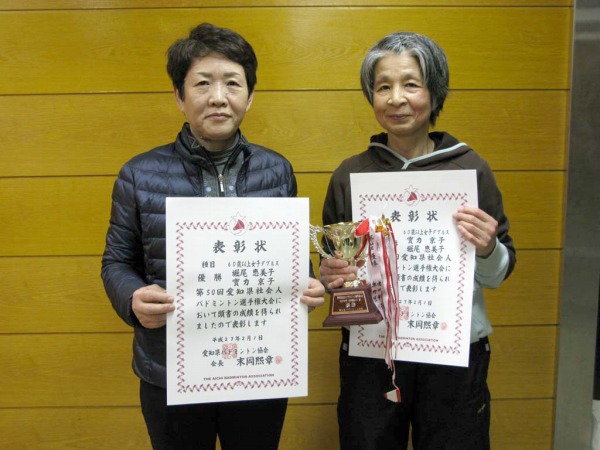 表彰状
種目 60歳以上女子ダブルス
優勝 堀尾 恵美子
實力 京子
第50回愛知県社会人
バドミントン選手権大会に
おいて頭書の成績を得られ
ましたので表彰します
平成27年2月1日
愛知県バドミントン協会
会長 末岡熙章
THE AICHI BADMINTON ASSOCIATION
表彰状
60歳以上女子ダブルス
實力 京子
堀尾 恵美子
愛知県社会人
トン選手権大会に
頭書の成績を得られ
ので表彰します
27年2月1日
ミントン協会
末岡熙章